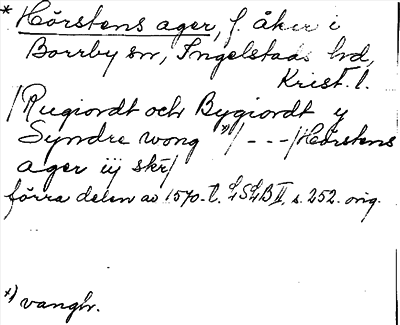 * Hörstens ager, f. åker i
Borrby sn, Ingelstads hd,
Krist. l.
/Rugiordt och Bygiordt y
Syndre wong *)/ - - -/Hörstens
ager iij skr/
förra delen av 1570-t. LSLB II, s. 252. orig.
*) vanghr.